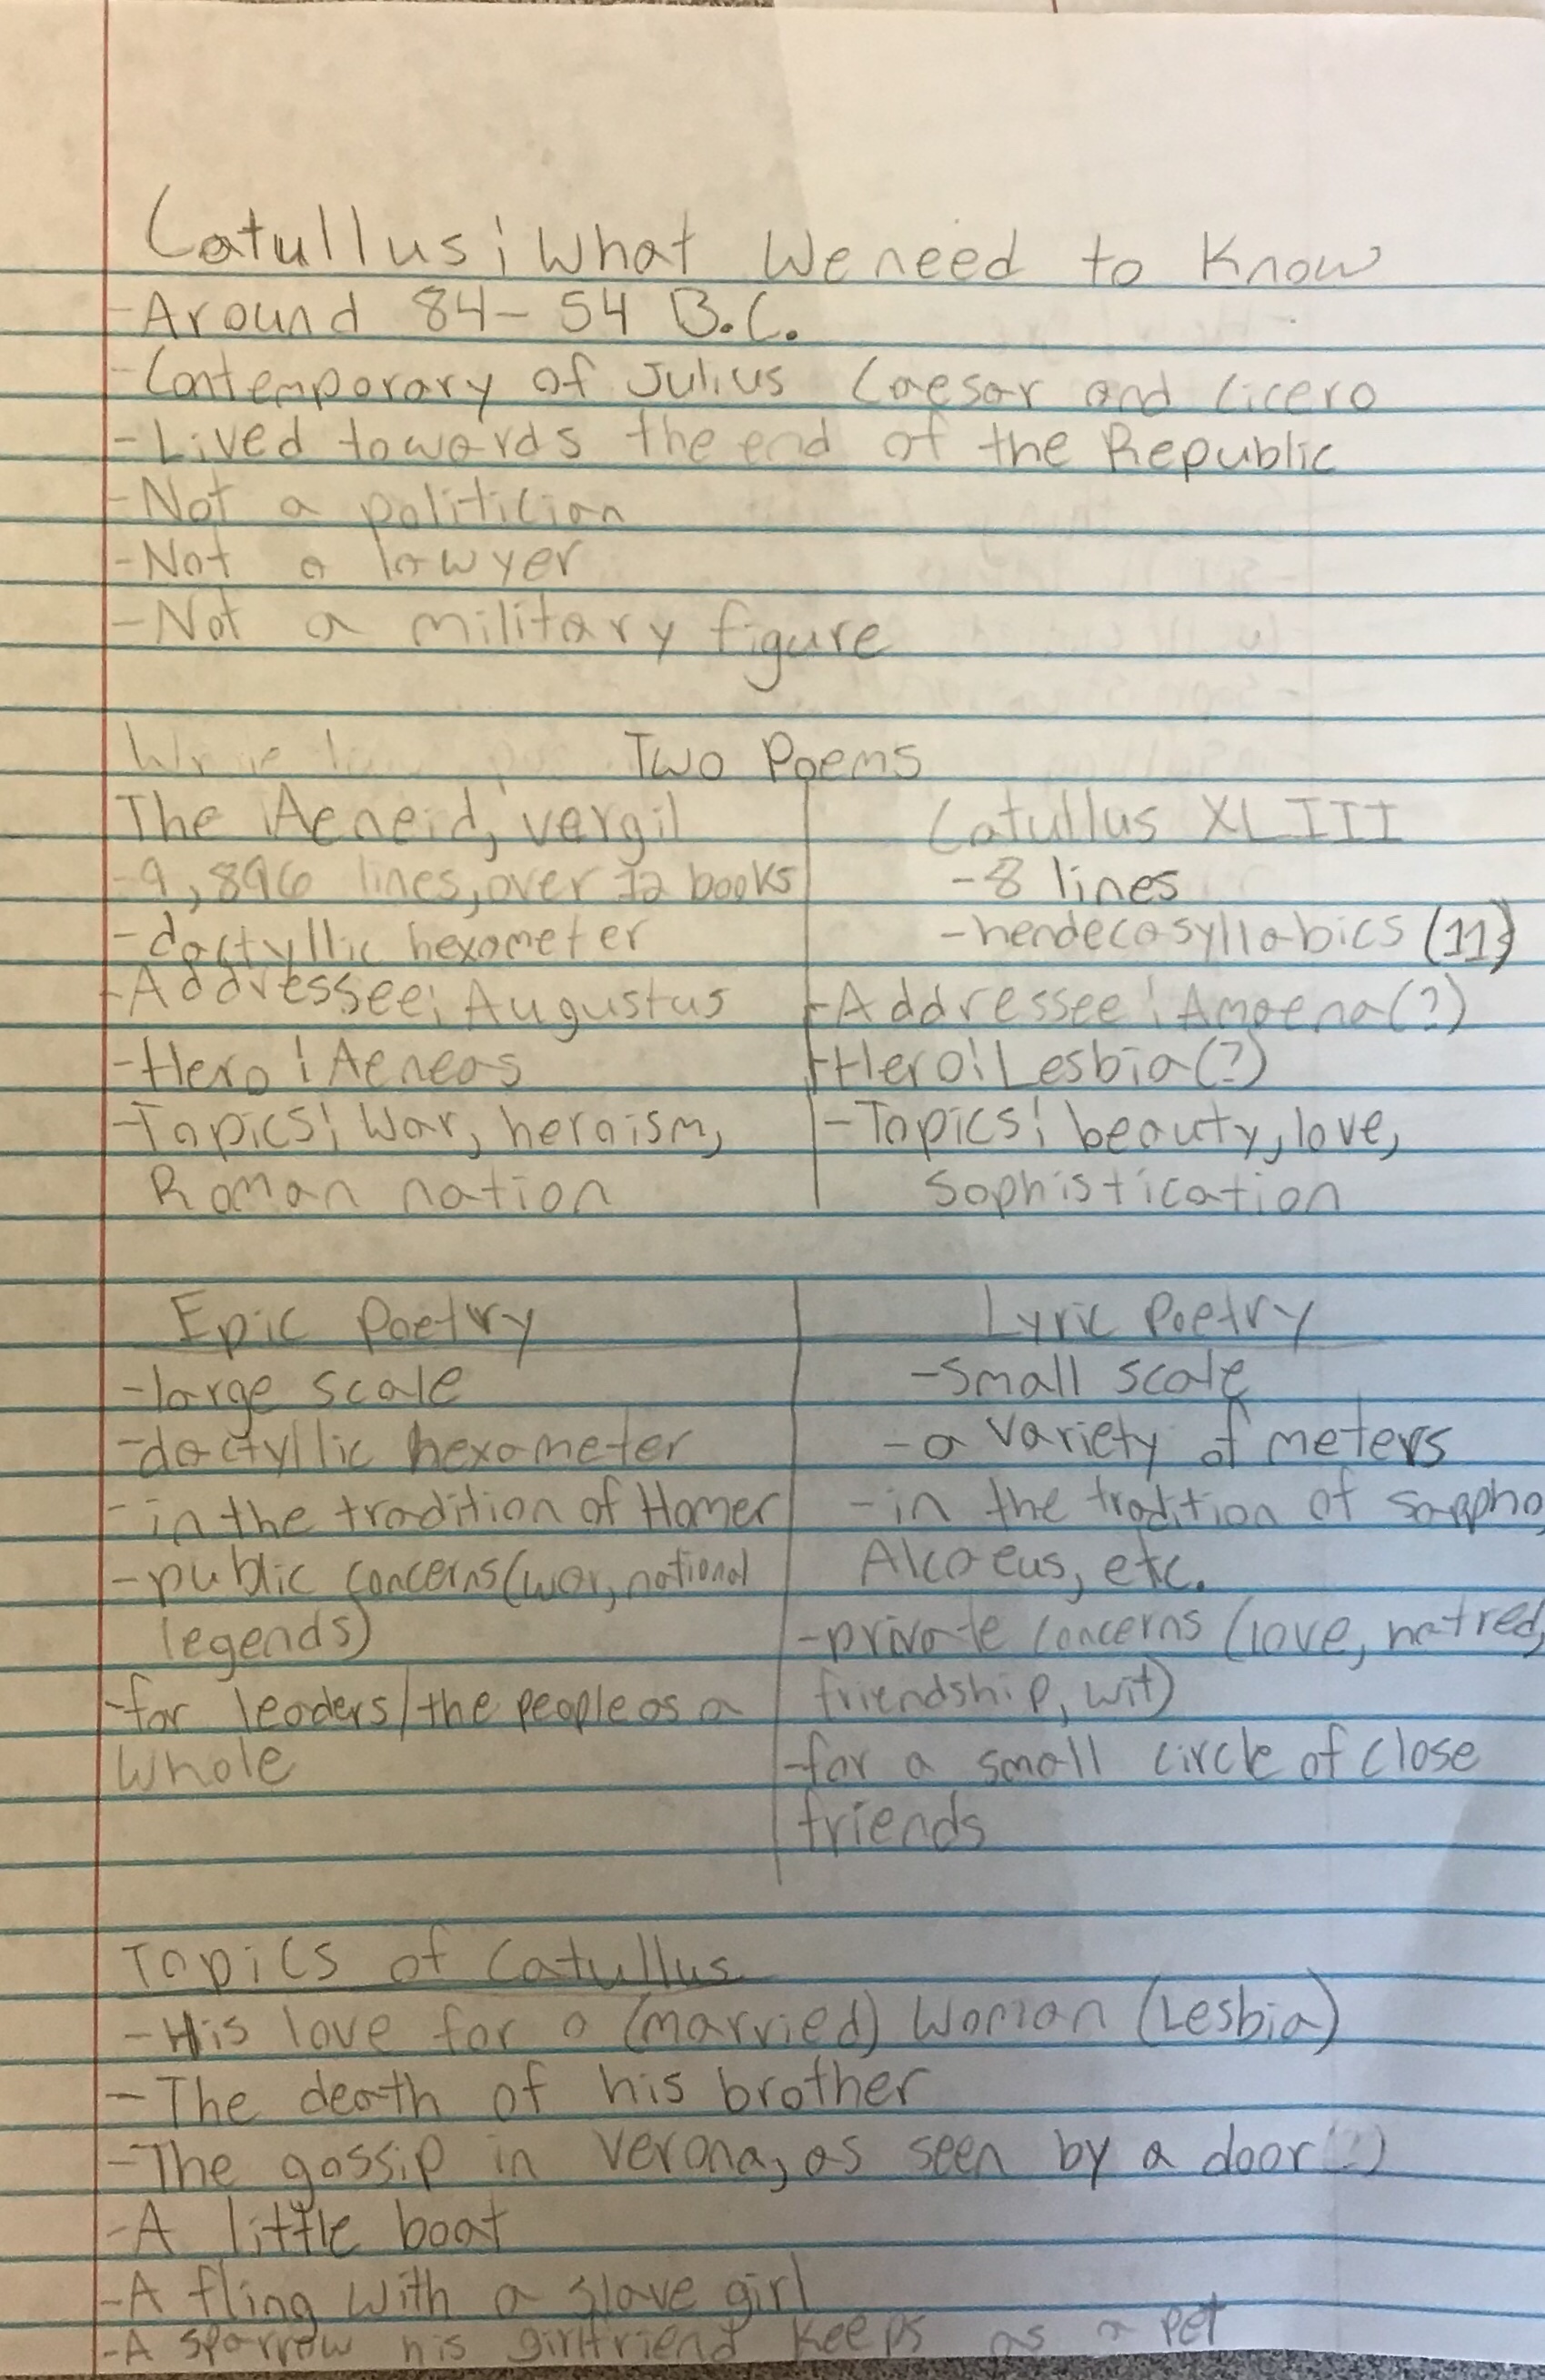 Catullus: What We need to Know
- Around 84-54 B.C.
- Contemporary of Julius Caesar and Cicero
- Lived towards the end of the Republic
- Not a politician
- Not a lawyer
- Not a military figure
Two Poems
The Aeneid, vergil
- 9,896 lines, over 12 books
- dactyllic hexameter
- Addressee: Augustus
- Hero: Aeneas
- Topics: War, heroism,
Roman nation
Catullus XLIII
- 8 lines
- hendecasyllabics (11)
- Addressee: Amoena(?)
- Hero: Lesbia(?)
- Topics: beauty, love,
Sophistication
Epic Poetry
- large scale
- dactyllic hexameter
- in the tradition of Homer
- public concerns (war, national
legends)
- for leaders/the people as a
whole
Lyric Poetry
- Small scale
- a variety of meters
- in the tradition of Sappho,
Alcaeus, etc.
- private concerns (love, hatred,
friendship, wit)
- for a small circle of close
friends
Topics of Catullus
- His love for a (married) Woman (Lesbia)
- The death of his brother
- The gossip in Verona, as seen by a door(?)
- A little boat
- A fling with a slave girl
- A sparrow his girlfriend keeps as a pet